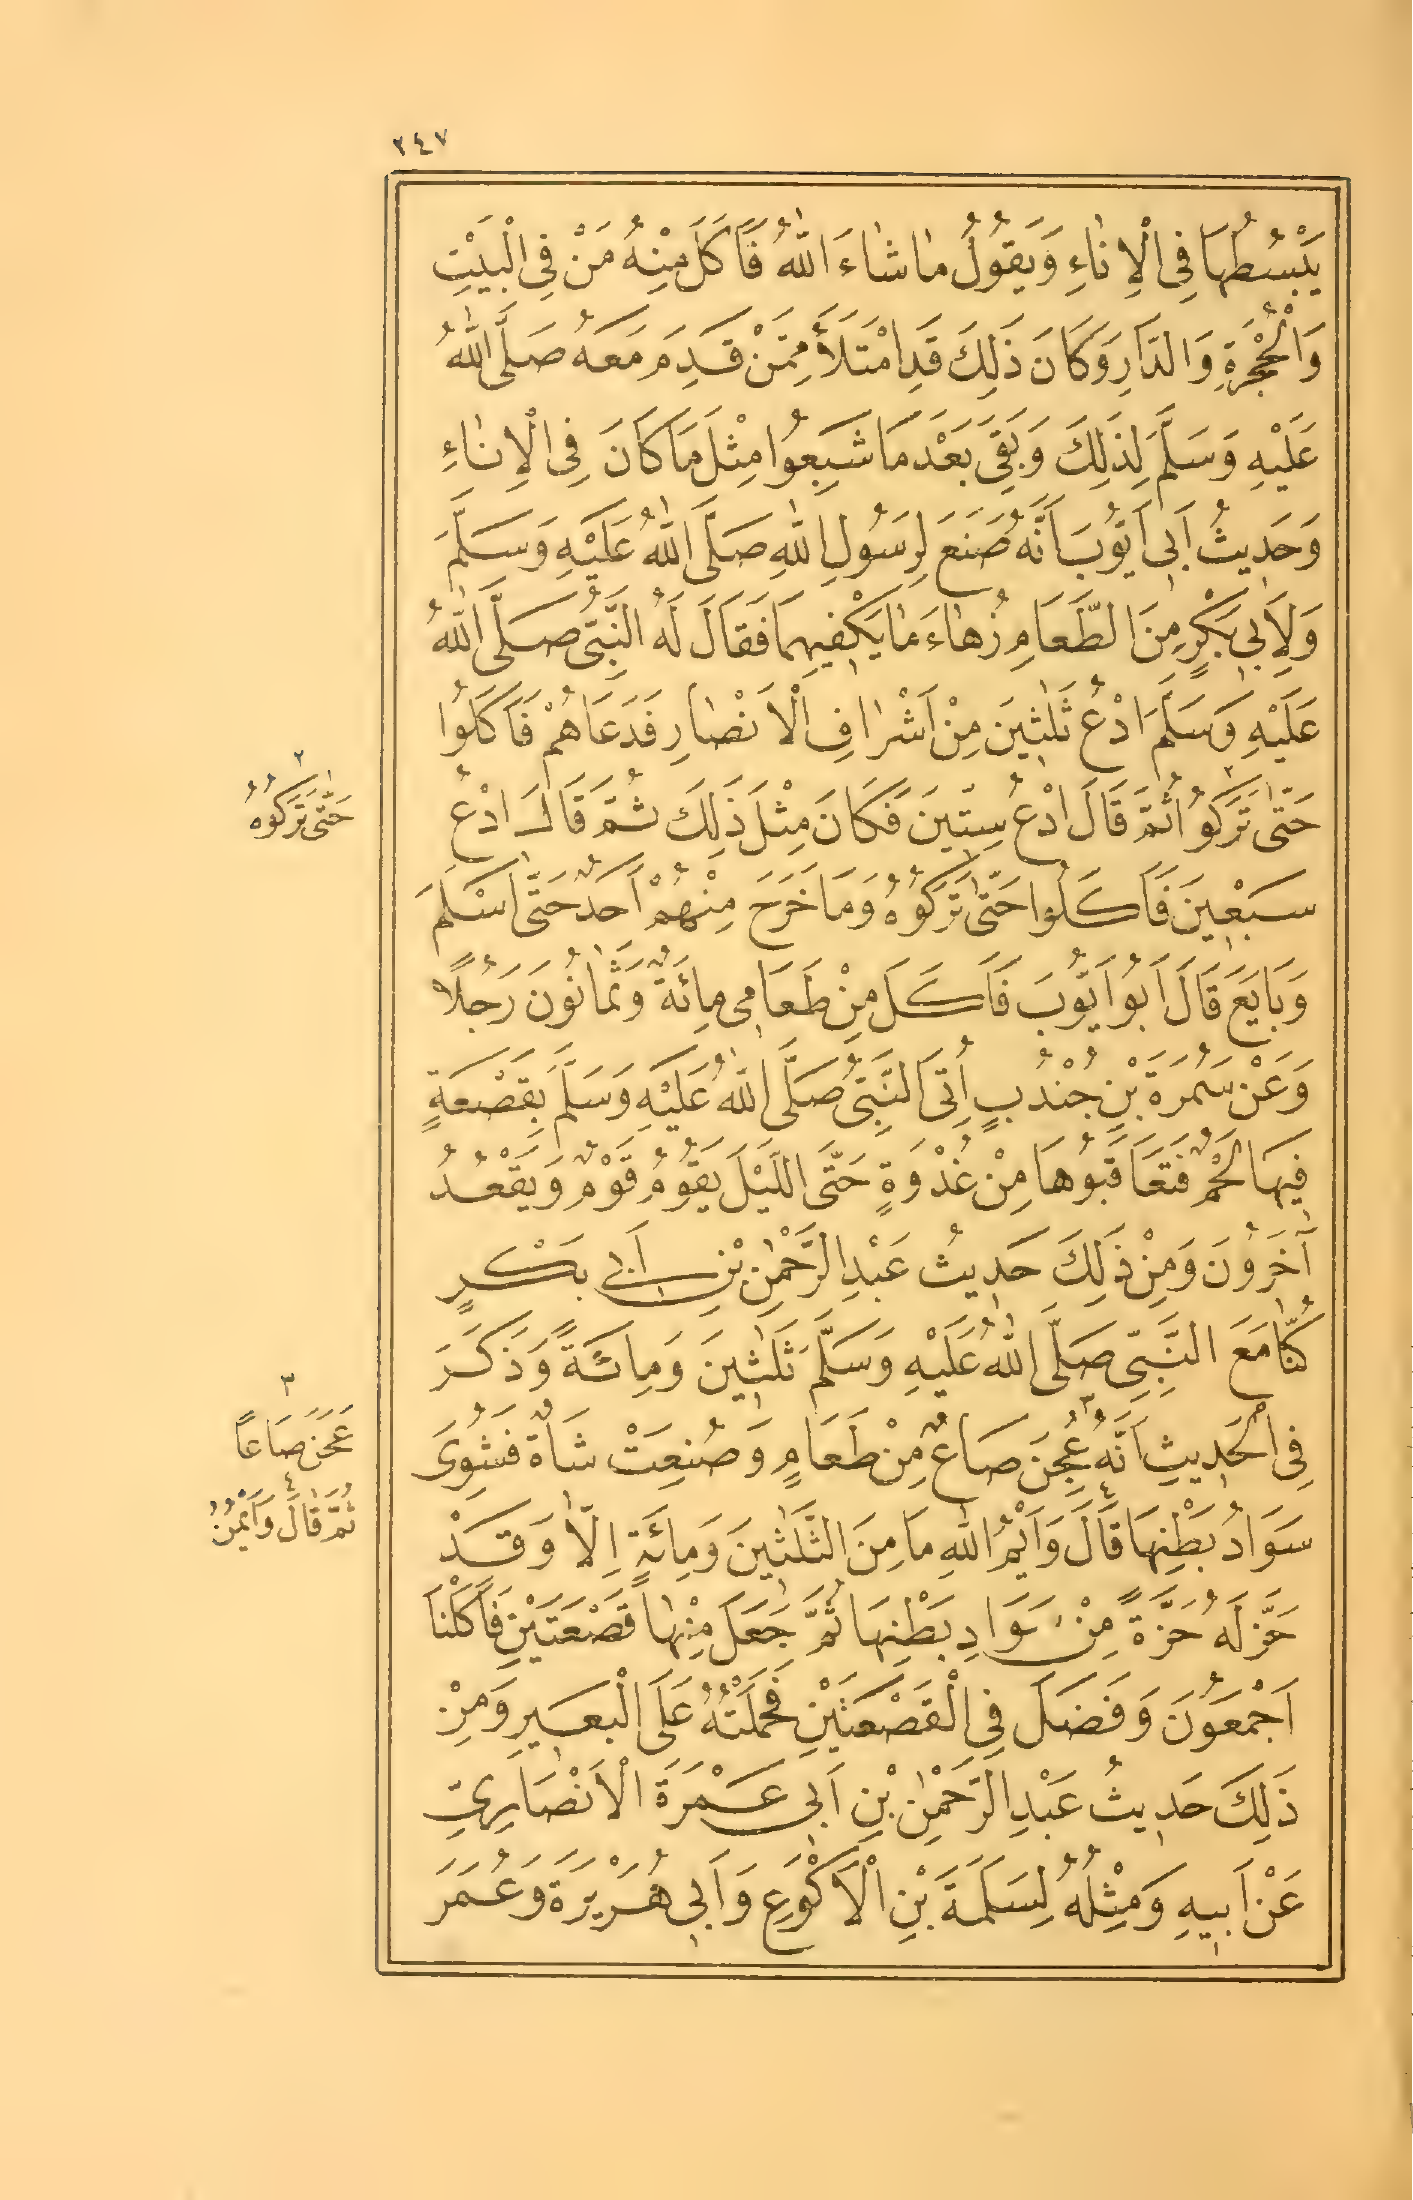 ٢٤٧
يَبْسُطُهَا فِى الْاِنَاءِ وَيَقُولُ مَا شَاءَ اللّٰهُ فَاَكَلَ مِنْهُ مَنْ فِى الْبَيْتِ
وَالْحُجْرَةِ وَالدَّارِ وَكَانَ ذَلِكَ قَدِ امْتَلَأَ مِمَّنْ قَدِمَ مَعَهُ صَلَّى اللّٰهُ
عَلَيْهِ وَسَلَّمَ لِذَلِكَ وَبَقِىَ بَعْدَ مَا شَبِعُوا مِثْلَ مَا كَانَ فِى الْاِنَاءِ
وَحَدِيثُ اَبِى اَيُّوبَ اَنَّهُ صَنَعَ لِرَسُولِ اللّٰهِ صَلَّى اللّٰهُ عَلَيْهِ وَسَلَّمَ
وَلِاَبِى بَكْرٍ مِنَ الطَّعَامِ زُهَاءَ مَا يَكْفِيهِمَا فَقَالَ لَهُ النَّبِىُّ صَلَّى اللّٰهُ
عَلَيْهِ وَسَلَّمَ ادْعُ ثَلٰثِينَ مِنْ اَشْرَافِ الْاَنْصَارِ فَدَعَاهُمْ فَاَكَلُوا
حَتّٰى تَرَكُوا ثُمَّ قَالَ ادْعُ سِتِّينَ فَكَانَ مِثْلَ ذَلِكَ ثُمَّ قَالَ ادْعُ
سَبْعِينَ فَاَكَلُوا حَتّٰى تَرَكُوهُ وَمَا خَرَجَ مِنْهُمْ اَحَدٌ حَتّٰى اَسْلَمَ
وَبَايَعَ قَالَ اَبُو اَيُّوبَ فَاَكَلَ مِنْ طَعَامِى مِائَةٌ وَثَمَانُونَ رَجُلًا
وَعَنْ سَمُرَةَ بْنِ جُنْدُبٍ أُتِىَ النَّبِىُّ صَلَّى اللّٰهُ عَلَيْهِ وَسَلَّمَ بِقَصْعَةٍ
فِيهَا لَحْمٌ فَتَعَاقَبُوهَا مِنْ غُدْوَةٍ حَتَّى اللَّيْلِ يَقُومُ قَوْمٌ وَيَقْعُدُ
آخَرُونَ وَمِنْ ذَلِكَ حَدِيثُ عَبْدِ الرَّحْمٰنِ بْنِ اَبِى بَكْرٍ
كُنَّا مَعَ النَّبِىِّ صَلَّى اللّٰهُ عَلَيْهِ وَسَلَّمَ ثَلٰثِينَ وَمِائَةً وَذَكَرَ
فِى الْحَدِيثِ اَنَّهُ ٣ عُجِنَ صَاعٌ مِنْ طَعَامٍ وَصُنِعَتْ شَاةٌ فَشُوِىَ
سَوَادُ بَطْنِهَا ٤ قَالَ وَاَيْمُ اللّٰهِ مَا مِنَ الثَّلٰثِينَ وَمِائَةٍ اِلَّا وَقَدْ
حَزَّ لَهُ حَزَّةً مِنْ سَوَادِ بَطْنِهَا ثُمَّ جَعَلَ مِنْهَا قَصْعَتَيْنِ فَاَكَلْنَا
اَجْمَعُونَ وَفَضَلَ فِى الْقَصْعَتَيْنِ فَحَمَلْتُهُ عَلَى الْبَعِيرِ وَمِنْ
ذَلِكَ حَدِيثُ عَبْدِ الرَّحْمٰنِ بْنِ اَبِى عَمْرَةَ الْاَنْصَارِىِّ
عَنْ اَبِيهِ وَمِثْلُهُ لِسَلَمَةَ بْنِ الْاَكْوَعِ وَاَبِى هُرَيْرَةَ وَعُمَرَ
٢
حَتّٰى تَرَكُوهُ
٣
عَجَنَ صَاعاً
٤
ثُمَّ قَالَ وَاَيْمُنُ